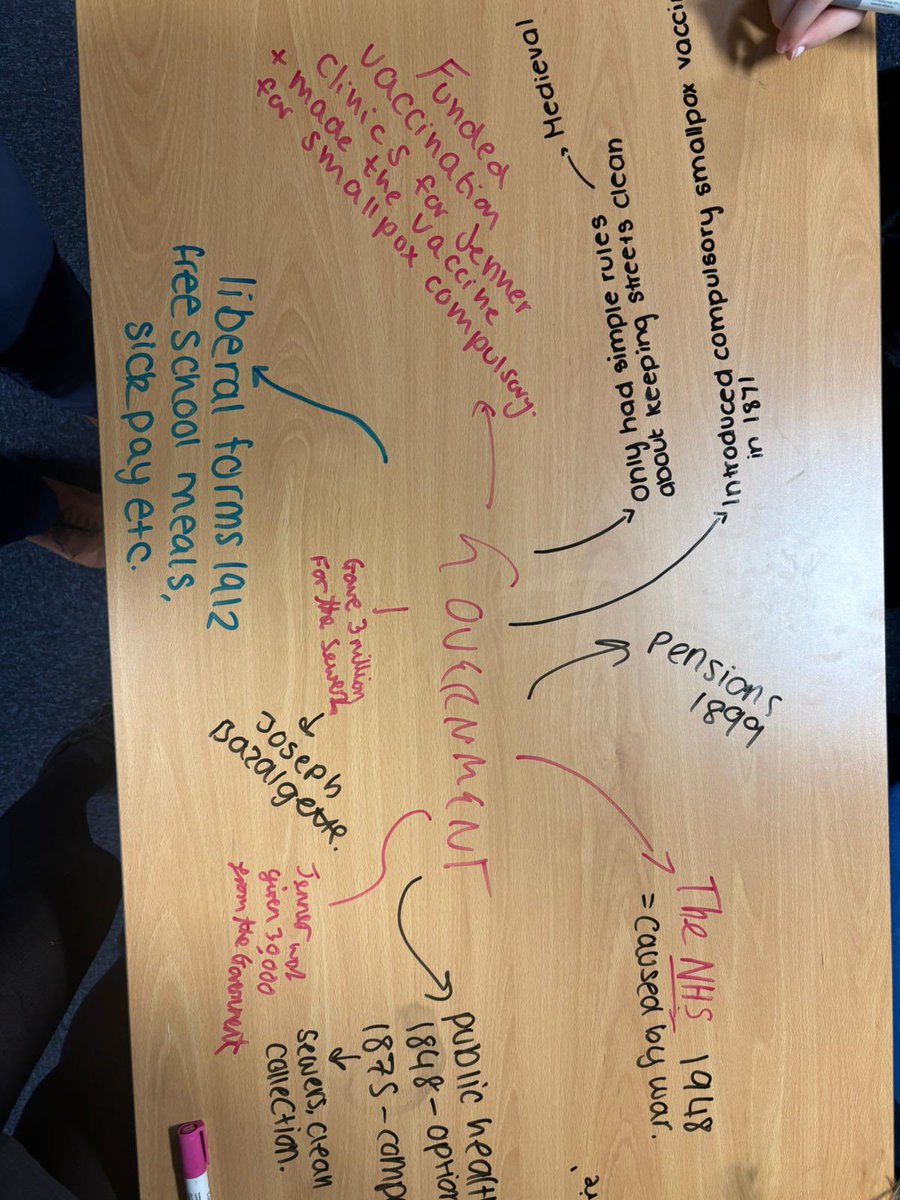 GOVERNMENT
Funded
vaccination
clinics for Jenner
x made the vaccine
for smallpox compulsory.
Medieval
only had simple rules
about keeping streets clean
Introduced compulsory smallpox vacci
in 1871
Pensions
1899
The NHS 1948
= caused by war.
liberal forms 1912
free school meals,
sick pay etc.
Gave 3 million
For the sewers
Joseph
Bazalgette.
Jenner was
given 30,000
from the Government
public healt
1848 - option
1875 - comp
sewers, clean
collection.